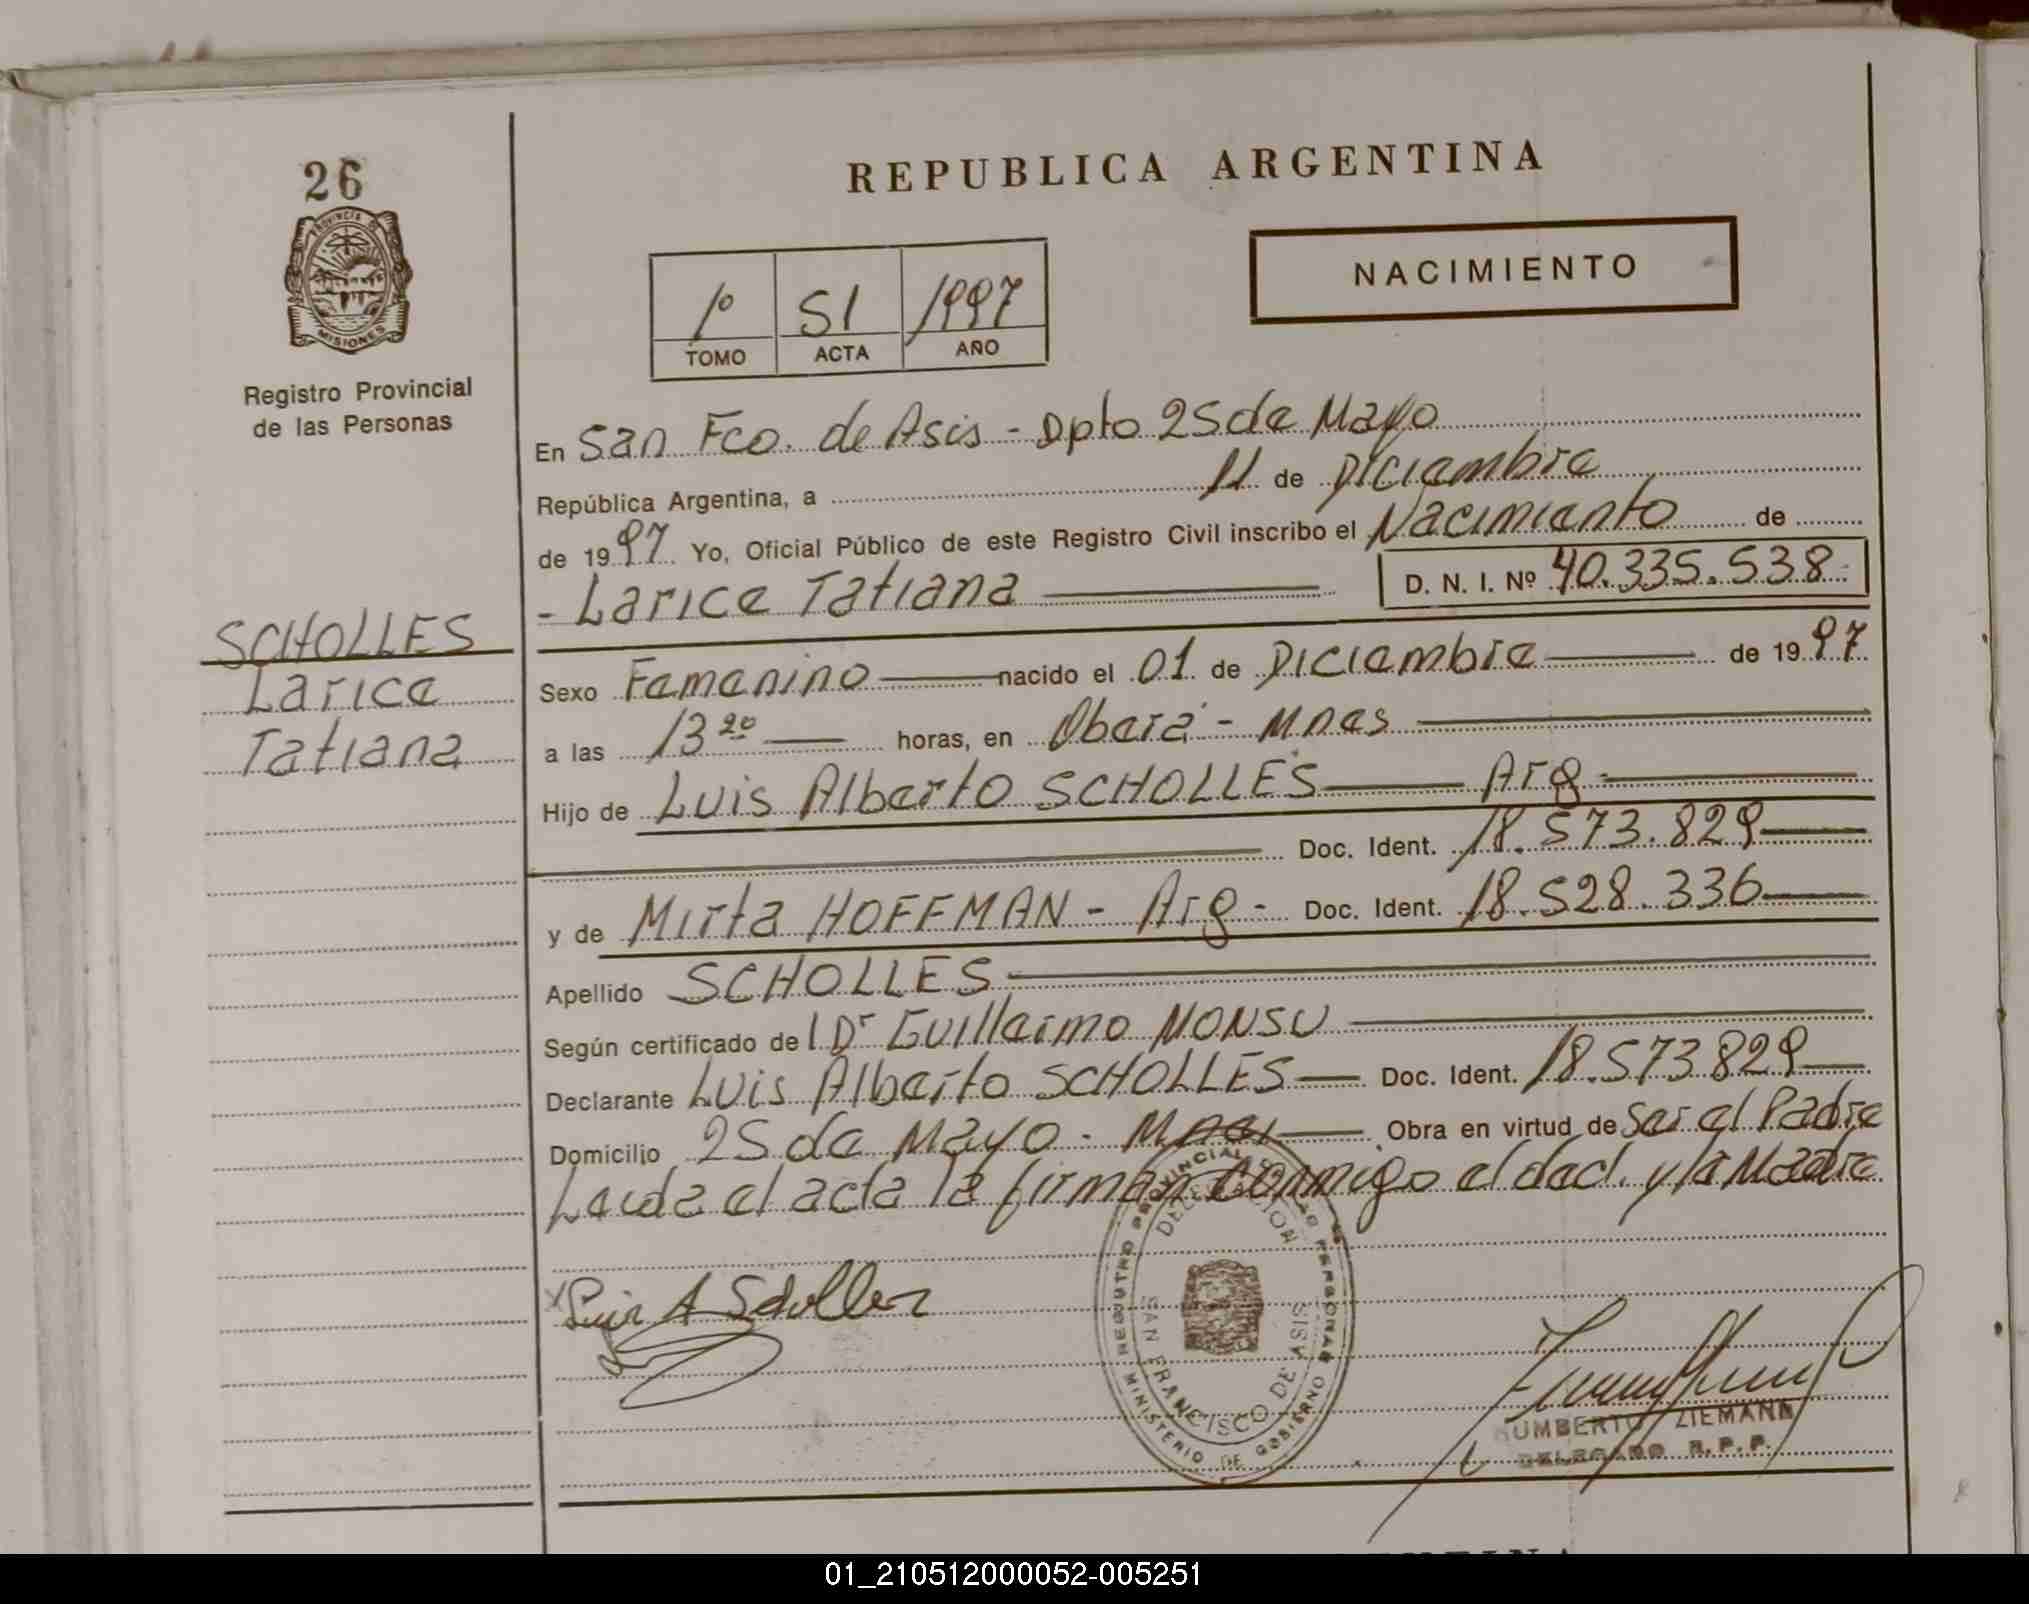 26
PROVINCIA DE
MISIONES
Registro Provincial
de las Personas
SCHOLLES
Larice
Tatiana
REPUBLICA ARGENTINA
NACIMIENTO
1º 51 1997
TOMO ACTA AÑO
En San Fco. de Asis - Dpto 25 de Mayo
República Argentina, a 11 de Diciembre
de 1997 Yo, Oficial Público de este Registro Civil inscribo el Nacimiento de
- Larice Tatiana D. N. I. Nº 40.335.538
Sexo Femenino nacido el 01 de Diciembre de 1997
a las 13 20 horas, en Oberá - Mnes
Hijo de Luis Alberto SCHOLLES Arg
Doc. Ident. 18.573.829
y de Mirta HOFFMAN - Arg - Doc. Ident. 18.528.336
Apellido SCHOLLES
Según certificado de l Dr Guillermo MONSU
Declarante Luis Alberto SCHOLLES Doc. Ident. 18.573829
Domicilio 25 de Mayo - Mnes Obra en virtud de Ser el Padre
Leida el acta la firman conmigo el decl. y la Madre
Luis A Scholles
REGISTRO PROVINCIAL DE LAS PERSONAS
DELEGACION
SAN FRANCISCO DE ASIS
MINISTERIO DE GOBIERNO
HUMBERTO ZIEMANN
DELEGADO R.P.P.
01_210512000052-005251